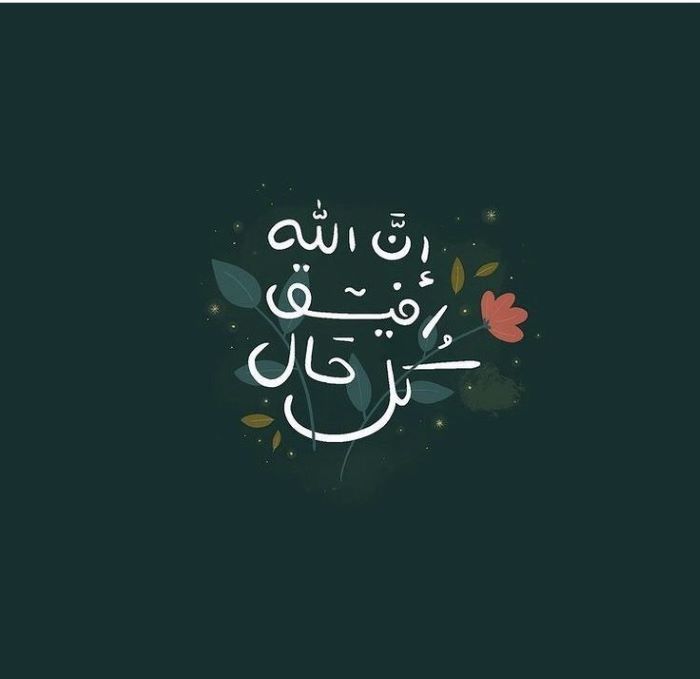 إنَّ الله
رفيق
كُل حَال